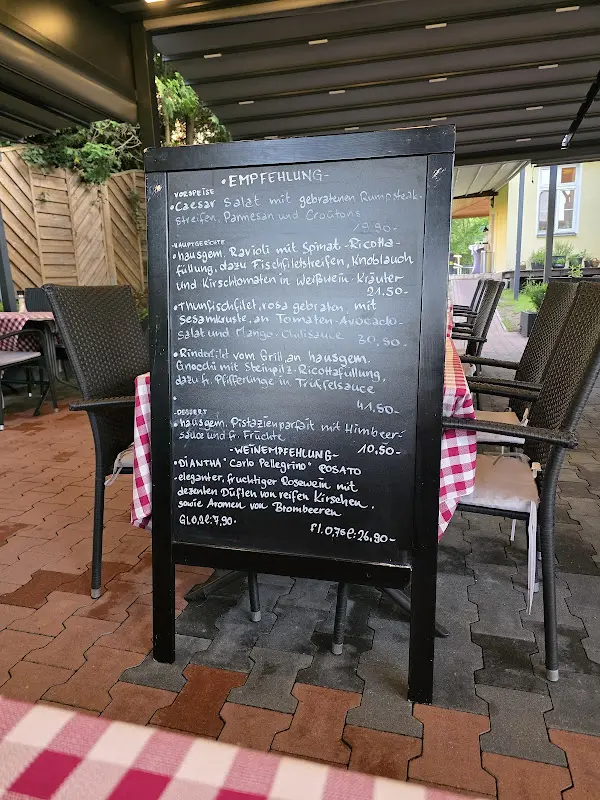 • EMPFEHLUNG-
VORSPEISE
• Caesar Salat mit gebratenen Rumpsteak-
streifen, Parmesan und Croûtons
19.90-
HAUPTGERICHTE
• hausgem. Ravioli mit Spinat-Ricotta-
füllung, dazu Fischfiletstreifen, Knoblauch
und Kirschtomaten in Weißwein-Kräuter
21.50-
• Thunfischfilet, rosa gebraten, mit
Sesamkruste, an Tomaten-Avocado-
Salat und Mango-Chilisauce 30,50-
• Rinderfilet vom Grill, an hausgem.
Gnocchi mit Steinpilz-Ricottafüllung,
dazu fr. Pfifferlinge in Trüffelsauce
41,50-
-DESSERT
• hausgem. Pistazienparfait mit Himbeer-
sauce und fr. Früchte 10,50-
-WEINEMPFEHLUNG-
• DIANTHA "Carlo Pellegrino" ROSATO
eleganter, fruchtiger Rosewein mit
dezenten Düften von reifen Kirschen,
sowie Aromen von Brombeeren
Gl.0,2l:7,90- Fl.0,75l:26,90-